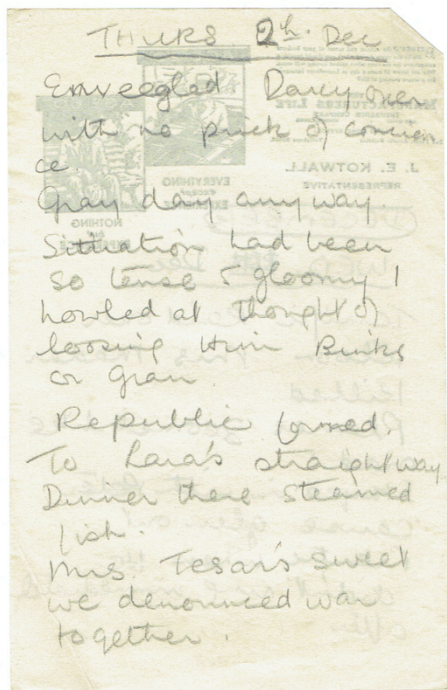 THURS 9th. Dec
Enveeglad Darcy over
with no prick of concien
ce
Gray day anyway.
Situation had been
so tense & gloomy I
howled at thought of
loosing Him Binks
or Gran
Republic formed.
To Lara's straightway
Dinner there Steamed
fish.
Mrs. Tesar's sweet
we denounced war
together.